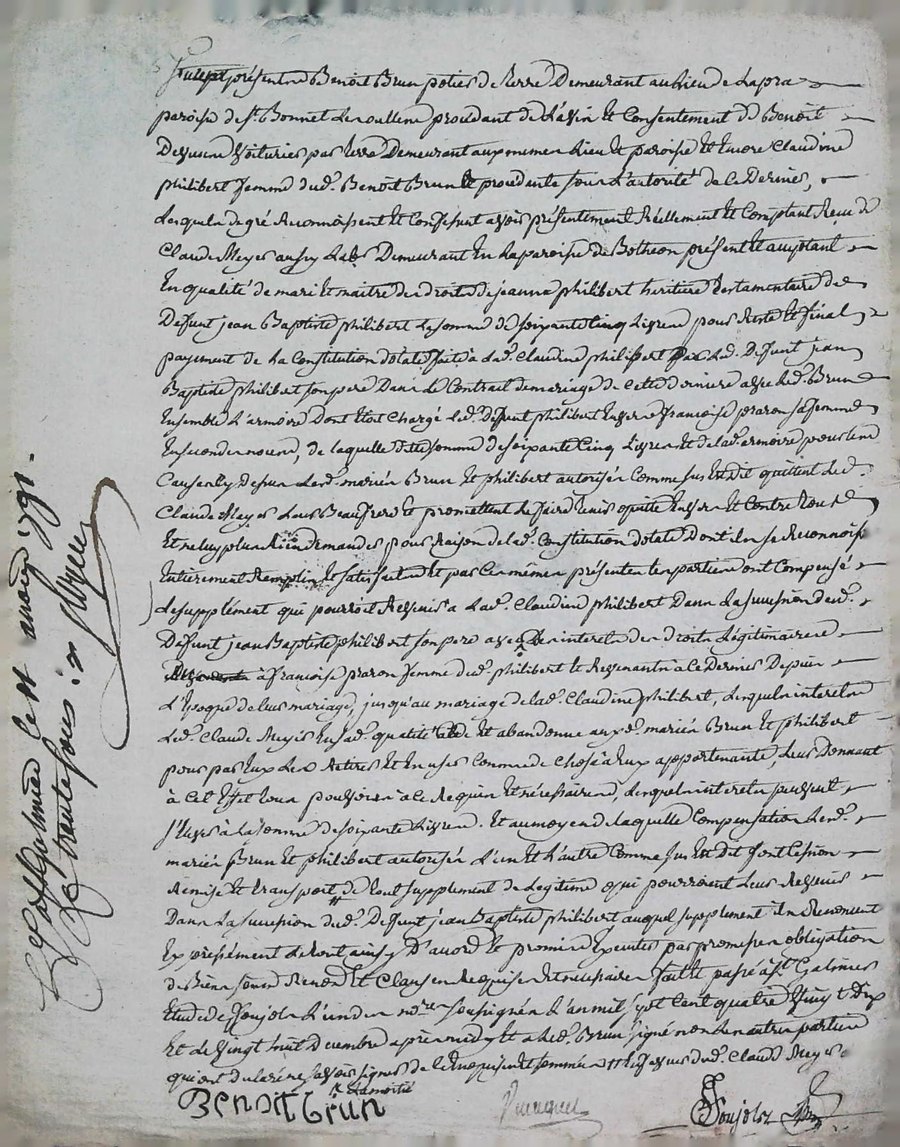 présent Benoit Brun potier de terre Demeurant au Lieu de Lapra
paroisse de St. Bonnet procedant de L'avis Et Consentement de Benoit
voiturier par terre Demeurant aux memes Lieu Et paroisse Et Encore Claudine
philibert femme dud. Benoit Brun Et procedante sous L'autorité de ce Dernier,
Lesquels de gré Reconnoissent Et Confessent avoir présentement Réellement Et Comptant Reçu de
Claude Meyer aussy Demeurant En La paroisse de présent Et acceptant
En qualité de mari Et maitre des Droits de jeanne philibert heritiere testamentaire de
Defunt jean Baptiste philibert La somme de soixante Cinq Livres pour Reste Et final
payement de La Constitution dotale faite a Lad. Claudine philibert par Led. Defunt jean
Baptiste philibert son pere Dans Le Contrat de mariage de Cette derniere avec Led. Brun
Ensemble L'armoire Dont Etoit Chargé Led. Defunt philibert Envers françoise praron sa femme
En secondes noces, de laquelle dite somme de soixante Cinq Livres Et de lad. armoire pour Les
Causes Cy Dessus Les d. mariés Brun Et philibert autorisée Comme sus Est Dit quittent Led.
Claude Meyer Leur Beaufrere Et promettent de faire tenir quitte Envers Et Contre tous
Et ne luy plus Rien demander pour Raison de lad. Constitution dotale Dont ils se Reconnoissent
Entierement Remplis Et satisfaits Et par Ces mêmes présentes Les parties ont Compensé
Le supplément qui pourroit Revenir a Lad. Claudine philibert Dans La succession dud.
Defunt jean Baptiste philibert son pere avec Les interets des droits Légitimaires
à françoise praron femme dud. philibert Et Revenants a ce Dernier Depuis
L'Epoque de leur mariage, jusqu'au mariage de lad. Claudine philibert, Lesquels interets
Led. Claude Meyer En sad. qualité Cede Et abandonne auxd. mariés Brun Et philibert
pour par Eux Les Retirer Et En user Comme de Chose a Eux appartenante, Leur Donnant
à Cet Effet tous pouvoirs à ce Requis Et nécessaires, Lesquels interets peuvent
à La somme de soixante Livres. Et au moyen de laquelle Compensation Lesd.
mariés Brun Et philibert autorisée L'un Et L'autre Comme sus Est Dit font Cession
Remise Et transport de tout supplement de Legitime qui pourroient Leur Revenir
Dans La succession dud. Defunt jean Baptiste philibert auquel supplement ils Renoncent
Expressément Le tout ainsy D'acord Et promis Executer par promesses obligation
de Biens soumis Renon Et Clauses Requises Et necessaires fait Et passé à St. Galmier
Etude de Poujolz L'un des nores. soussignés L'an mil sept Cent quatre vingt Dix
Et Le vingt huit Decembre après midy Et a Led. Brun signé non Les autres parties
qui ont declaré ne savoir signer de ce Enquises Et sommées dud. Claude Meyer
La moitié
BENOIT brun
Poujolz
Controllé a St. Galmier Le 11 1791.
Rx trente sous :